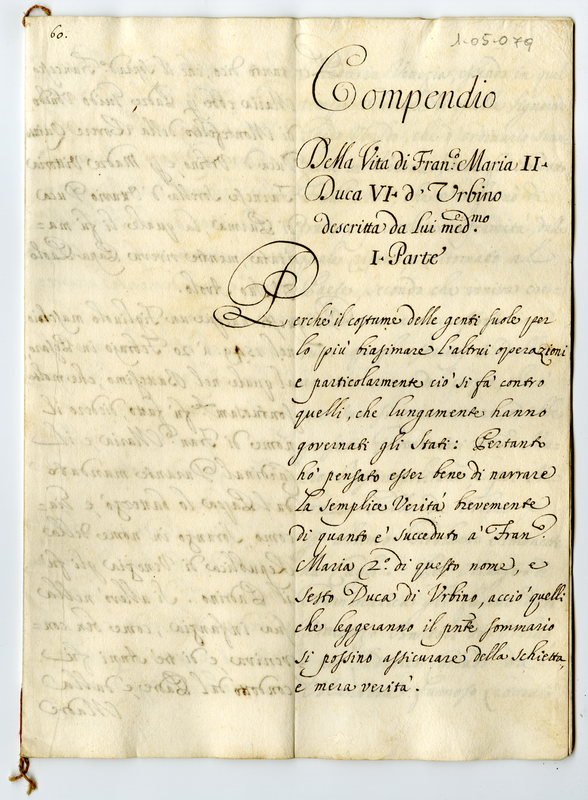 60.
1-05-079
Compendio
Della Vita di Fran.º Maria II.
Duca VI. d'Urbino
descritta da lui med.mo
I. Parte
Perchè il costume delle genti suole per
lo più biasimare l'altrui operazioni
e particolarmente ciò si fà contro
quelli, che lungamente hanno
governati gli Stati: Pertanto
hò pensato esser bene di narrare
la semplice Verità brevemente
di quanto è succeduto à Fran.º
Maria 2.º di questo nome, e
sesto Duca di Urbino, acciò quelli
che leggeranno il pnte sommario
si possino assicurare della schietta,
e mera verità.